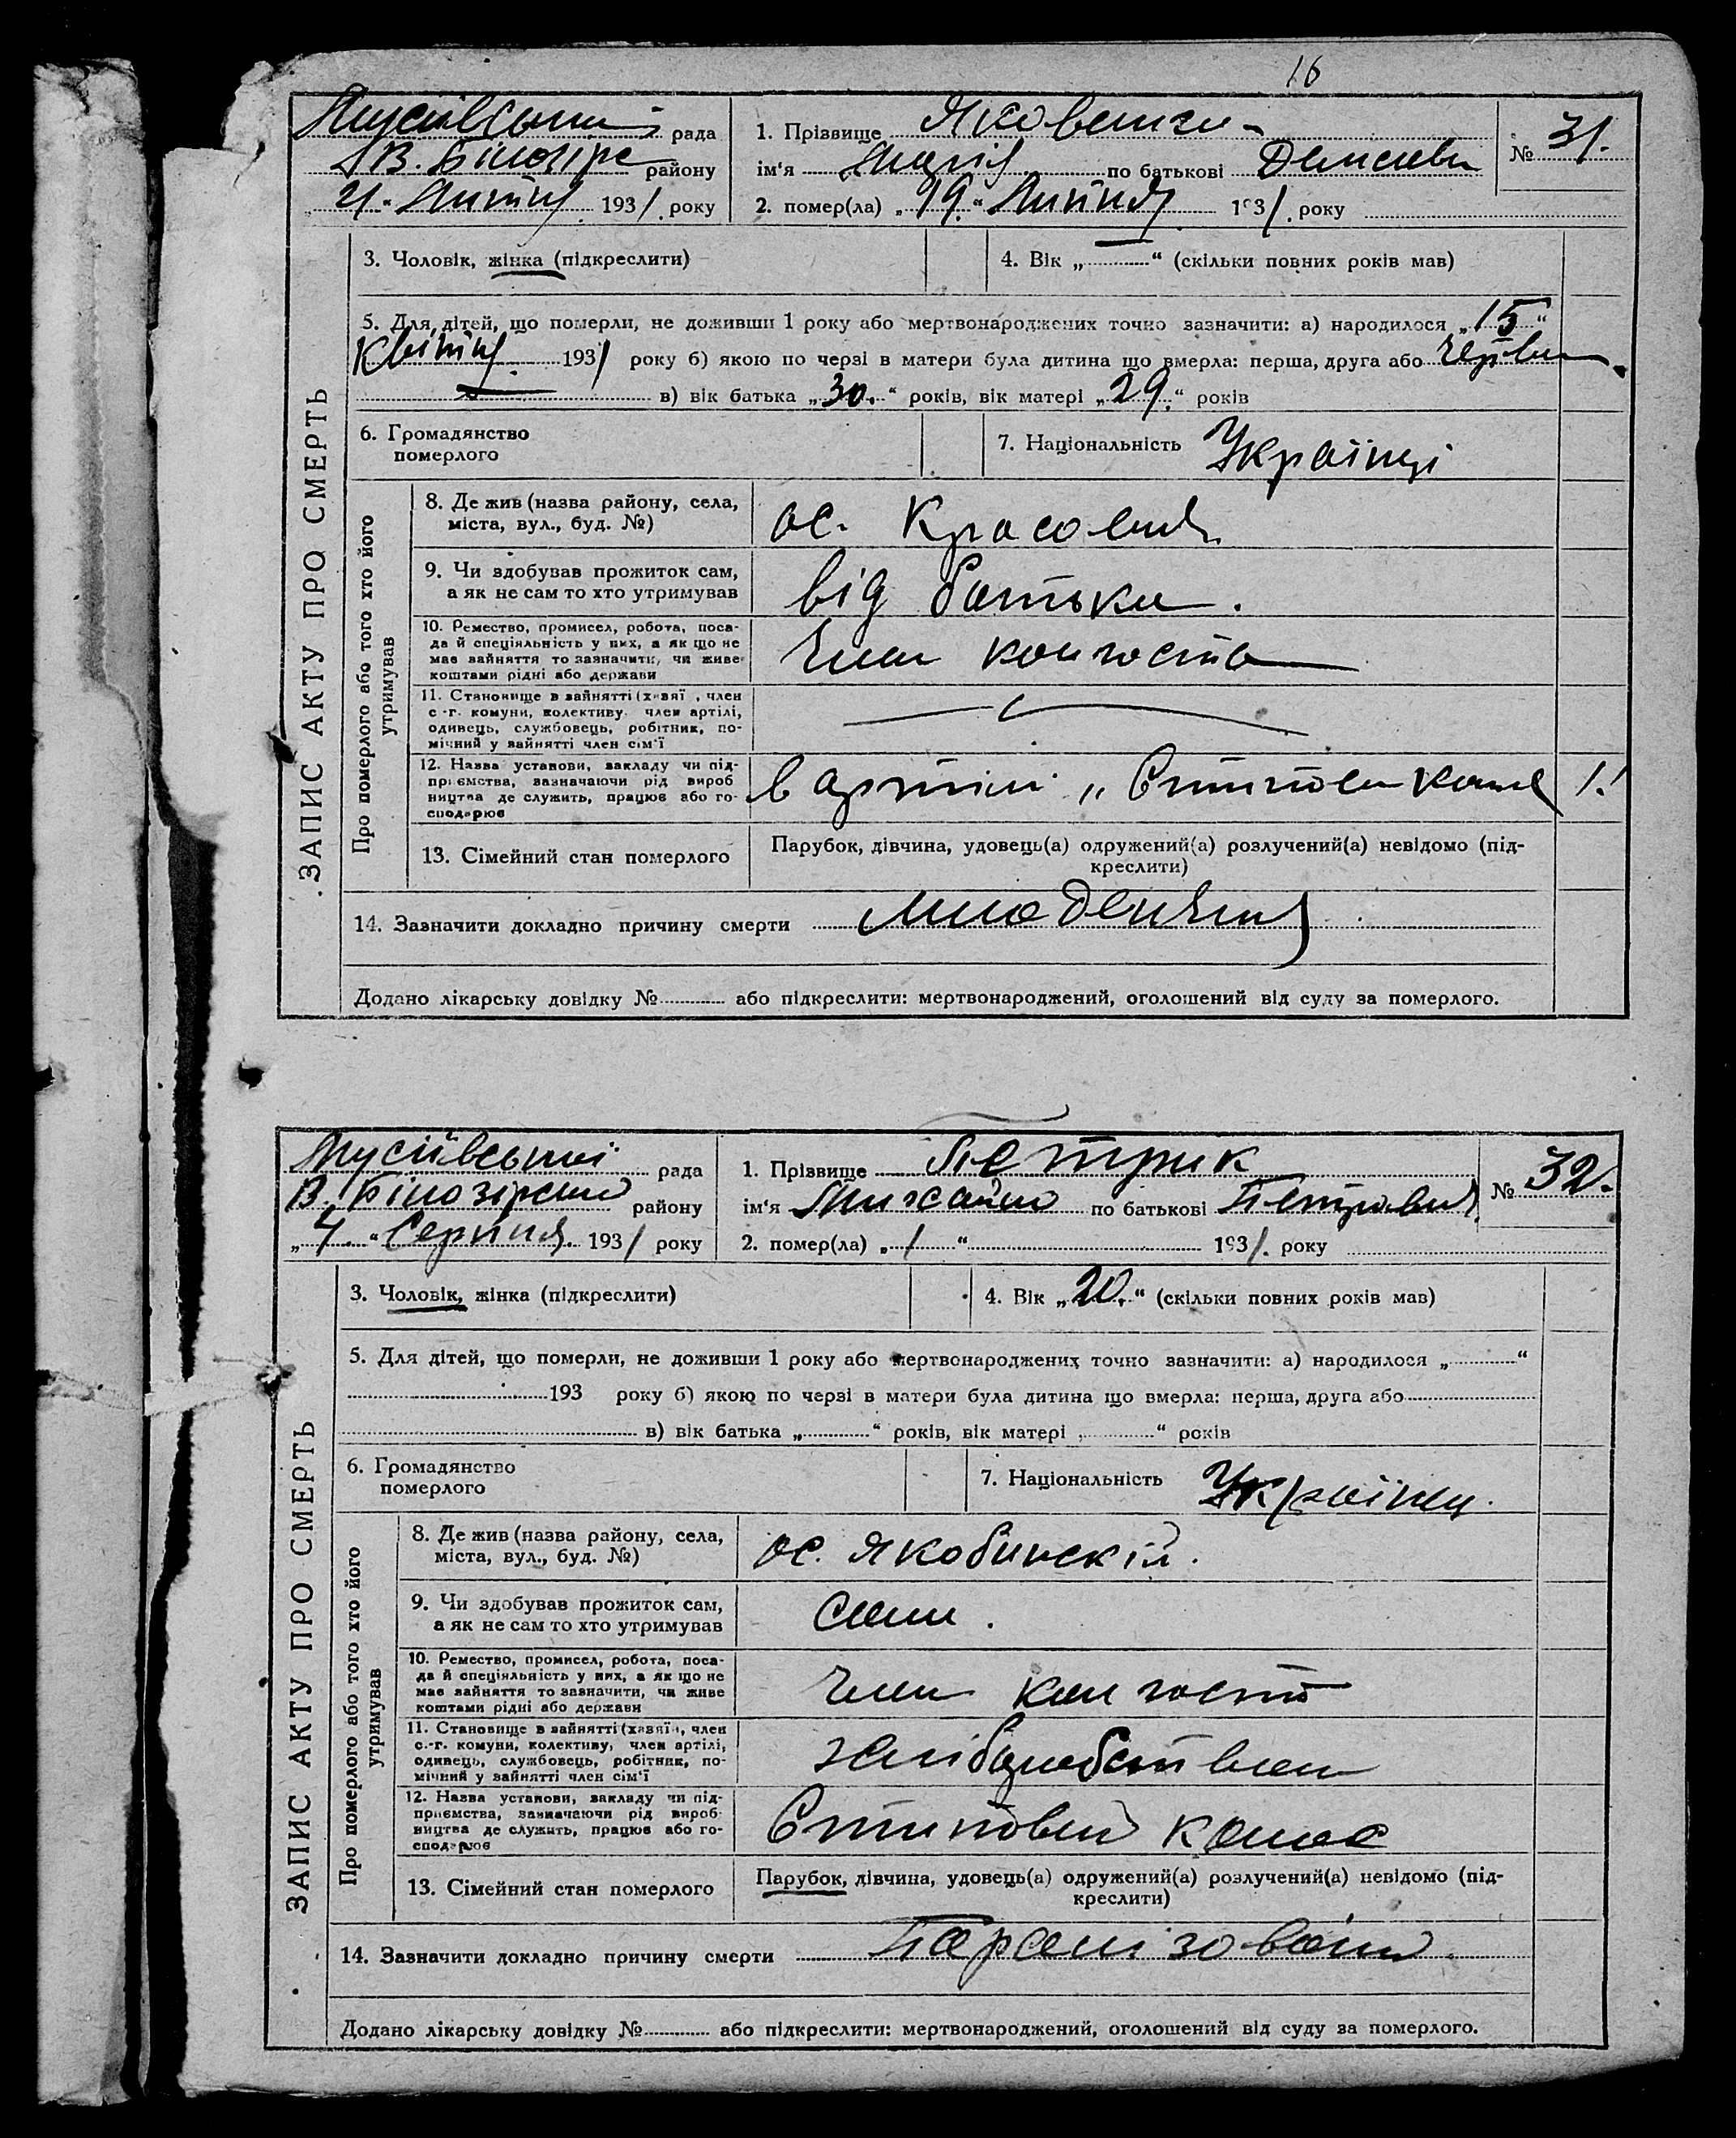 16
рада
1. Прізвище Яковенко
№ 31.
В. Білозірс району
ім'я Марія по батькові
21 Липня 1931 року
2. помер(ла) „19“ Липня 1931. року
3. Чоловік, жінка (підкреслити)
4. Вік „ “ (скільки повних років мав)
5. Для дітей, що померли, не доживши 1 року або мертвонароджених точно зазначити: а) народилося „15“
Квітня 1931 року б) якою по черзі в матери була дитина що вмерла: перша, друга або
в) вік батька „30.“ років, вік матері „29.“ років
6. Громадянство
померлого
7. Національність Українці
ЗАПИС АКТУ ПРО СМЕРТЬ
Про померлого або того хто його
утримував
8. Де жив (назва району, села,
міста, вул., буд. №)
ос.
9. Чи здобував прожиток сам,
а як не сам то хто утримував
від батька.
10. Ремество, промисел, робота, поса-
да й спеціяльність у них, а як що не
має зайняття то зазначити, чи живе
коштами рідні або держави
член
11. Становище в зайнятті (хазяї, член
с-г. комуни, колективу, член артілі,
одивець, службовець, робітник, по-
мічний у зайнятті член сім'ї
12. Назва установи, закладу чи під-
приємства, зазначаючи рід вироб
ництва де служить, працює або го-
сподарює
в артілі 1.!
13. Сімейний стан померлого
Парубок, дівчина, удовець(а) одружений(а) розлучений(а) невідомо (під-
креслити)
14. Зазначити докладно причину смерти
Додано лікарську довідку № або підкреслити: мертвонароджений, оголошений від суду за померлого.
Мусіївської рада
1. Прізвище Петрик
№ 32.
В. Білозірсько району
ім'я Михайло по батькові Петрович
„4.“ Серпня 1931 року
2. помер(ла) „1“ 1931. року
3. Чоловік, жінка (підкреслити)
4. Вік „20.“ (скільки повних років мав)
5. Для дітей, що померли, не доживши 1 року або мертвонароджених точно зазначити: а) народилося „ “
193 року б) якою по черзі в матери була дитина що вмерла: перша, друга або
в) вік батька „ “ років, вік матері „ “ років
6. Громадянство
померлого
7. Національність Українец.
ЗАПИС АКТУ ПРО СМЕРТЬ
Про померлого або того хто його
утримував
8. Де жив (назва району, села,
міста, вул., буд. №)
ос. Якобинскій.
9. Чи здобував прожиток сам,
а як не сам то хто утримував
сам.
10. Ремество, промисел, робота, поса-
да й спеціяльність у них, а як що не
має зайняття то зазначити, чи живе
коштами рідні або держави
член
11. Становище в зайнятті (хазяїн, член
с.-г. комуни, колективу, член артілі,
одивець, службовець, робітник, по-
мічний у зайнятті член сім'ї
12. Назва установи, закладу чи під-
приємства, зазначаючи рід вироб-
ництва де служить, працює або го-
сподарює
13. Сімейний стан померлого
Парубок, дівчина, удовець(а) одружений(а) розлучений(а) невідомо (під-
креслити)
14. Зазначити докладно причину смерти
Додано лікарську довідку № або підкреслити: мертвонароджений, оголошений від суду за померлого.